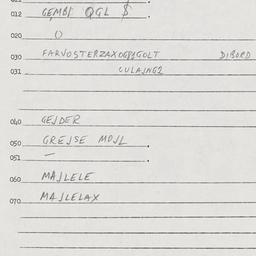 012 GEMBI QGL $
020 0
030 FARVOSTERZAXOGP1GOLT DIBORD
031 CULAJNG2
040 GEJDER
050 GREJSE MDJL
051 —
060 MAJLELE
070 MAJLELAX